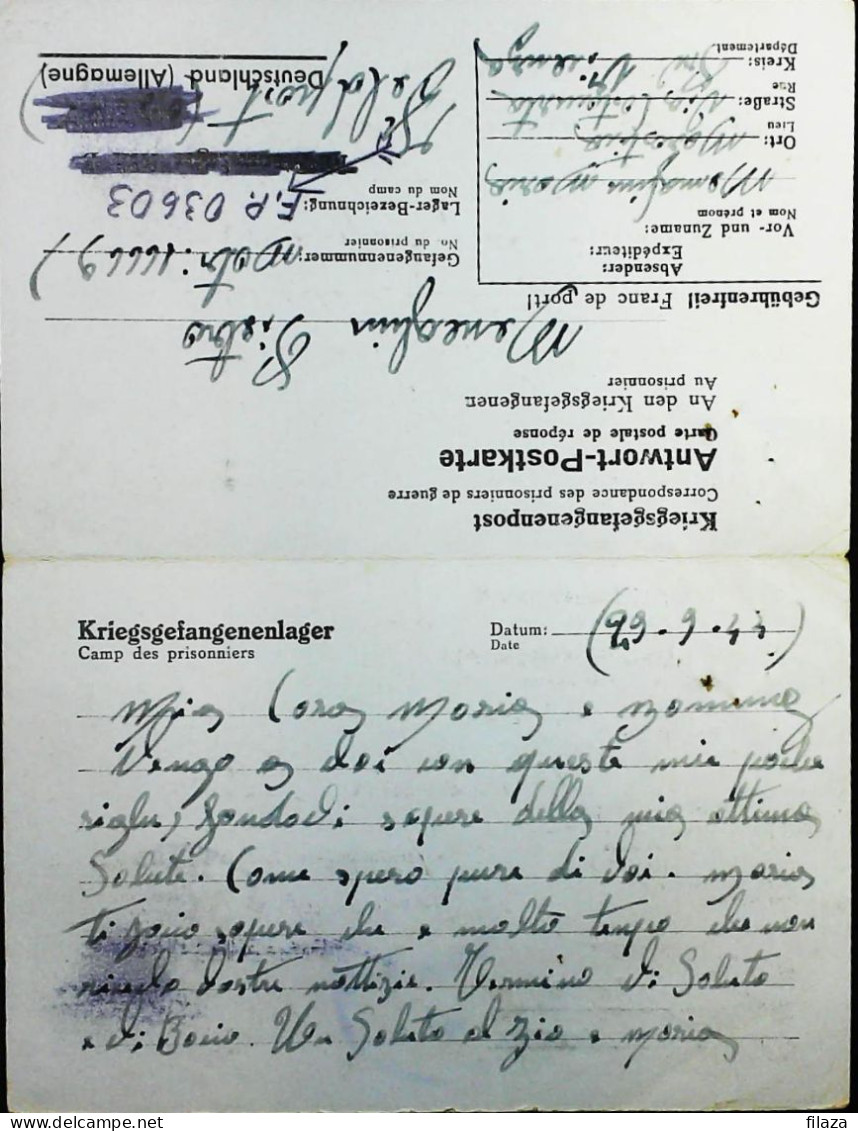 Kriegsgefangenenpost
Correspondance des prisonniers de guerre
Antwort-Postkarte
Carte postale de réponse
An den Kriegsgefangenen
Au prisonnier
Meneghin Pietro
Gebührenfrei! Franc de port!
Absender:
Expéditeur:
Vor- und Zuname:
Nom et prénom
Meneghin Maria
Ort: Marostica
Lieu
Straße: Via
Rue
Kreis: Vicenza
Département
Gefangenennummer: 16669)
No. du prisonnier
Lager-Bezeichnung: F.P. 03603
Nom du camp
Feldpost
Deutschland (Allemagne)
Kriegsgefangenenlager
Camp des prisonniers
Datum: 9.44)
Date
Mia Cara Maria e mamma
Vengo a Voi con queste mie poche
righe, facendovi sapere della mia ottima
Salute. Come spero pure di Voi. Maria
Ti facio sapere che e molto tempo che non
ricevo Vostre nottizie. Termino Vi Saluto
e Vi Bacio. Un Saluto al Zio e Maria
www.delcampe.net
filaza